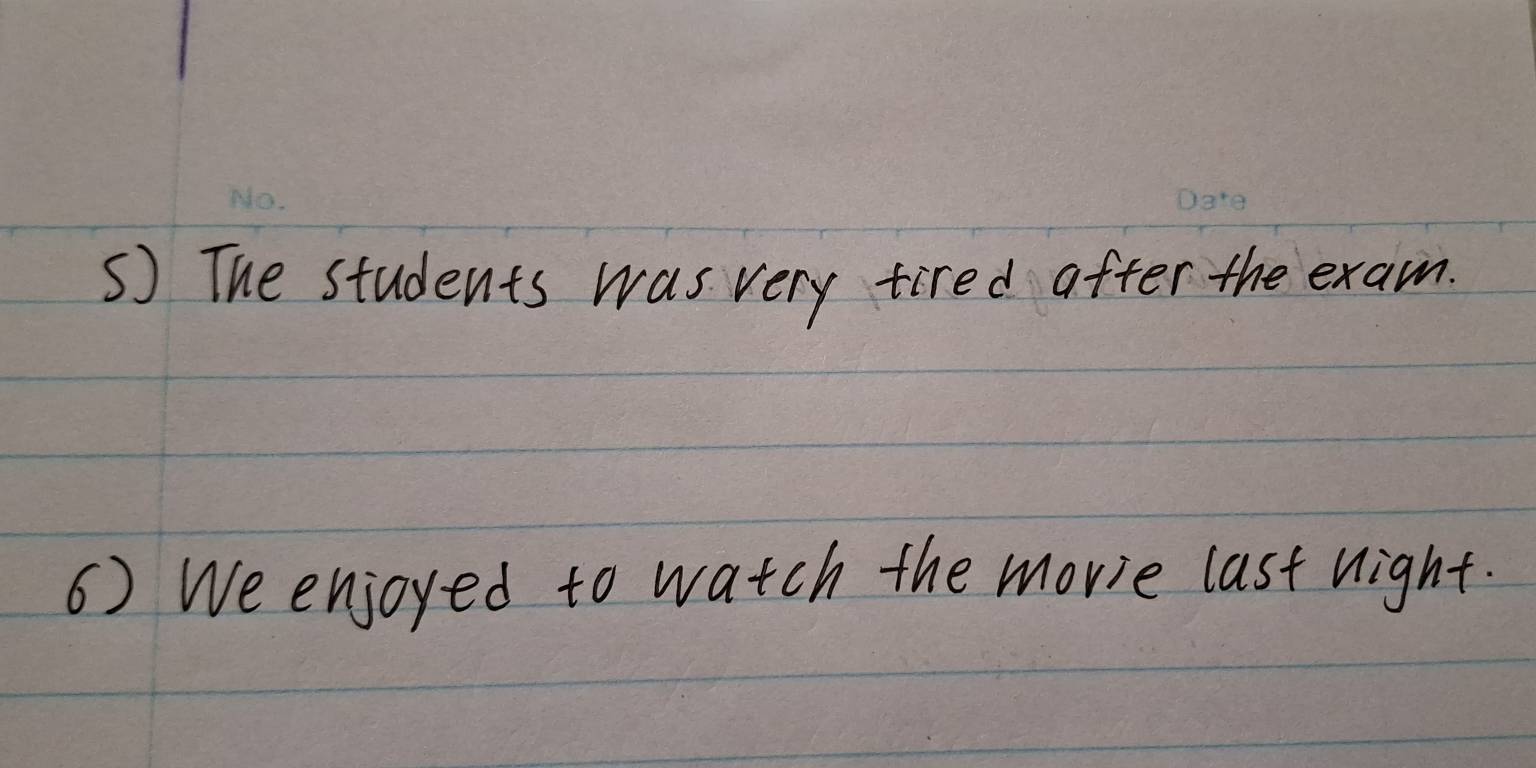 No. Date
5) The students was very tired after the exam.
6) We enjoyed to watch the movie last night.